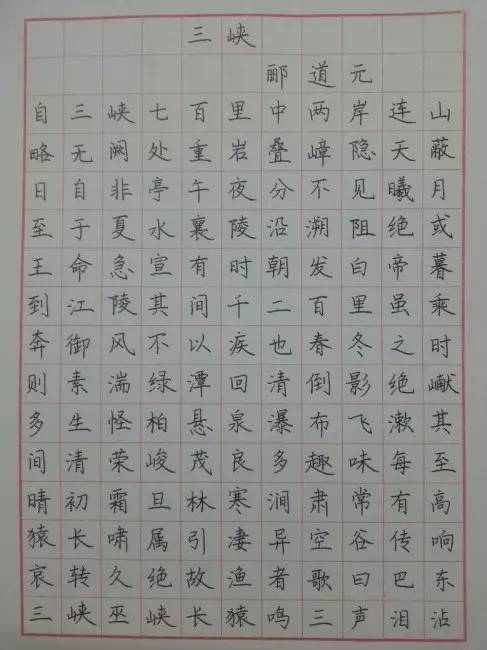 三峡
郦道元
自三峡七百里中两岸连山
略无阙处重岩叠嶂隐天蔽
日自非亭午夜分不见曦月
至于夏水襄陵沿溯阻绝或
王命急宣有时朝发白帝暮
到江陵其间千二百里虽乘
奔御风不以疾也春冬之时
则素湍绿潭回清倒影绝𪩘
多生怪柏悬泉瀑布飞漱其
间清荣峻茂良多趣味每至
晴初霜旦林寒涧肃常有高
猿长啸属引凄异空谷传响
哀转久绝故渔者歌曰巴东
三峡巫峡长猿鸣三声泪沾